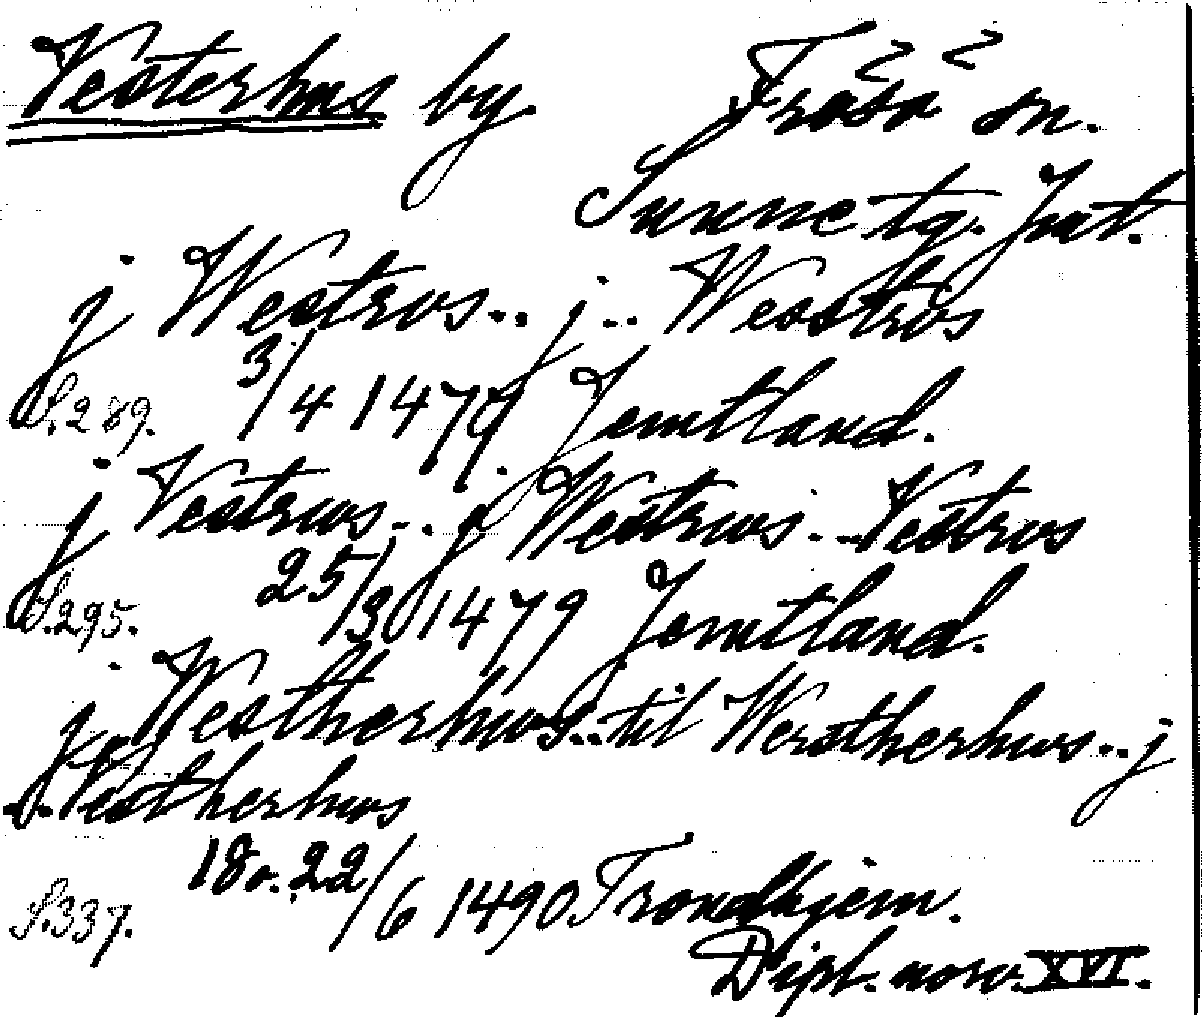 Vesterhus by. Frösö sn.
Sunne tg. Jmt.
j Westrws... j... Wesstrws
S. 289. 3/4 1479 Jemtland.
j Vestrws... j Westrws... Vestrws
S. 295. 25/3 1479 Jemtland.
j Westherhws... til Westherhws... j
Vestherhws
S. 337. 18 o. 22/6 1490 Trondhjem.
Dipl. norv. XVI.